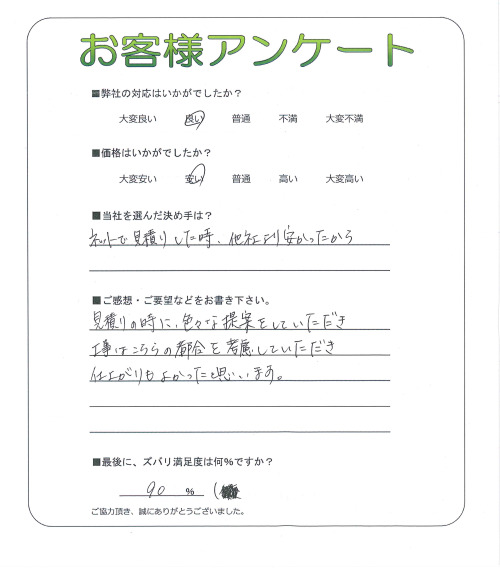 お客様アンケート
■弊社の対応はいかがでしたか？
大変良い 良い 普通 不満 大変不満
■価格はいかがでしたか？
大変安い 安い 普通 高い 大変高い
■当社を選んだ決め手は？
ネットで見積りした時、他社より安かったから
■ご感想・ご要望などをお書き下さい。
見積りの時に、色々な提案をしていただき
工事はこちらの都合を考慮していただき
仕上がりもよかったと思います。
■最後に、ズバリ満足度は何%ですか？
90 % (
ご協力頂き、誠にありがとうございました。